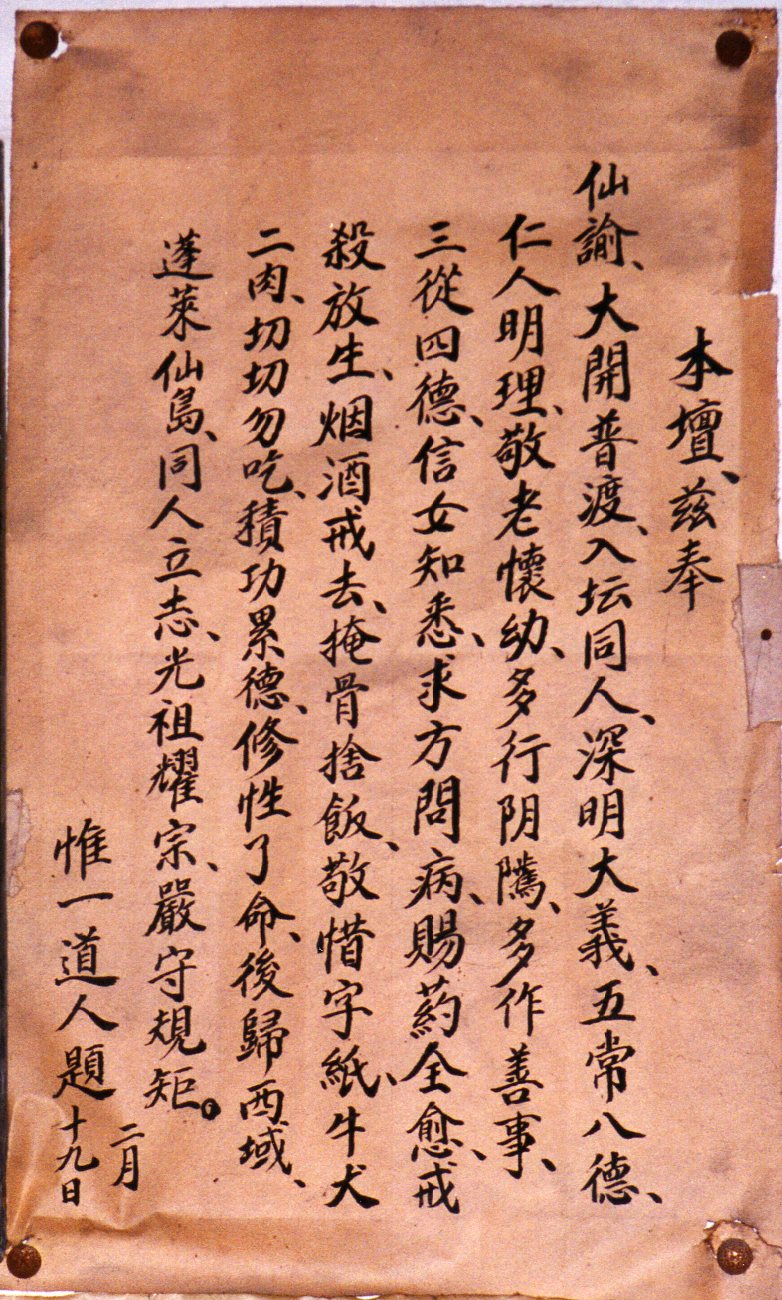 本壇、兹奉
仙諭、大開普渡、入坛同人、深明大義、五常八德、
仁人明理、敬老懷幼、多行阴騭、多作善事、
三從四德、信女知悉、求方問病、賜药全愈、戒
殺放生、烟酒戒去、掩骨捨飯、敬惜字紙、牛犬
二肉、切切勿吃、積功累德、修性了命、後歸西域、
蓬萊仙島、同人立志、光祖耀宗、嚴守規矩。
惟一道人題
二月
十九日